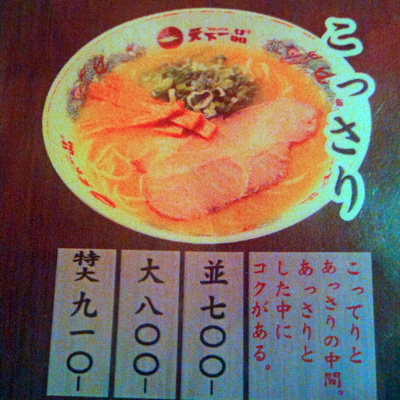 天下一品
こっさり
こってりと
あっさりの中間。
あっさりと
した中に
コクがある。
並 七〇〇-
大 八〇〇-
特大 九一〇-